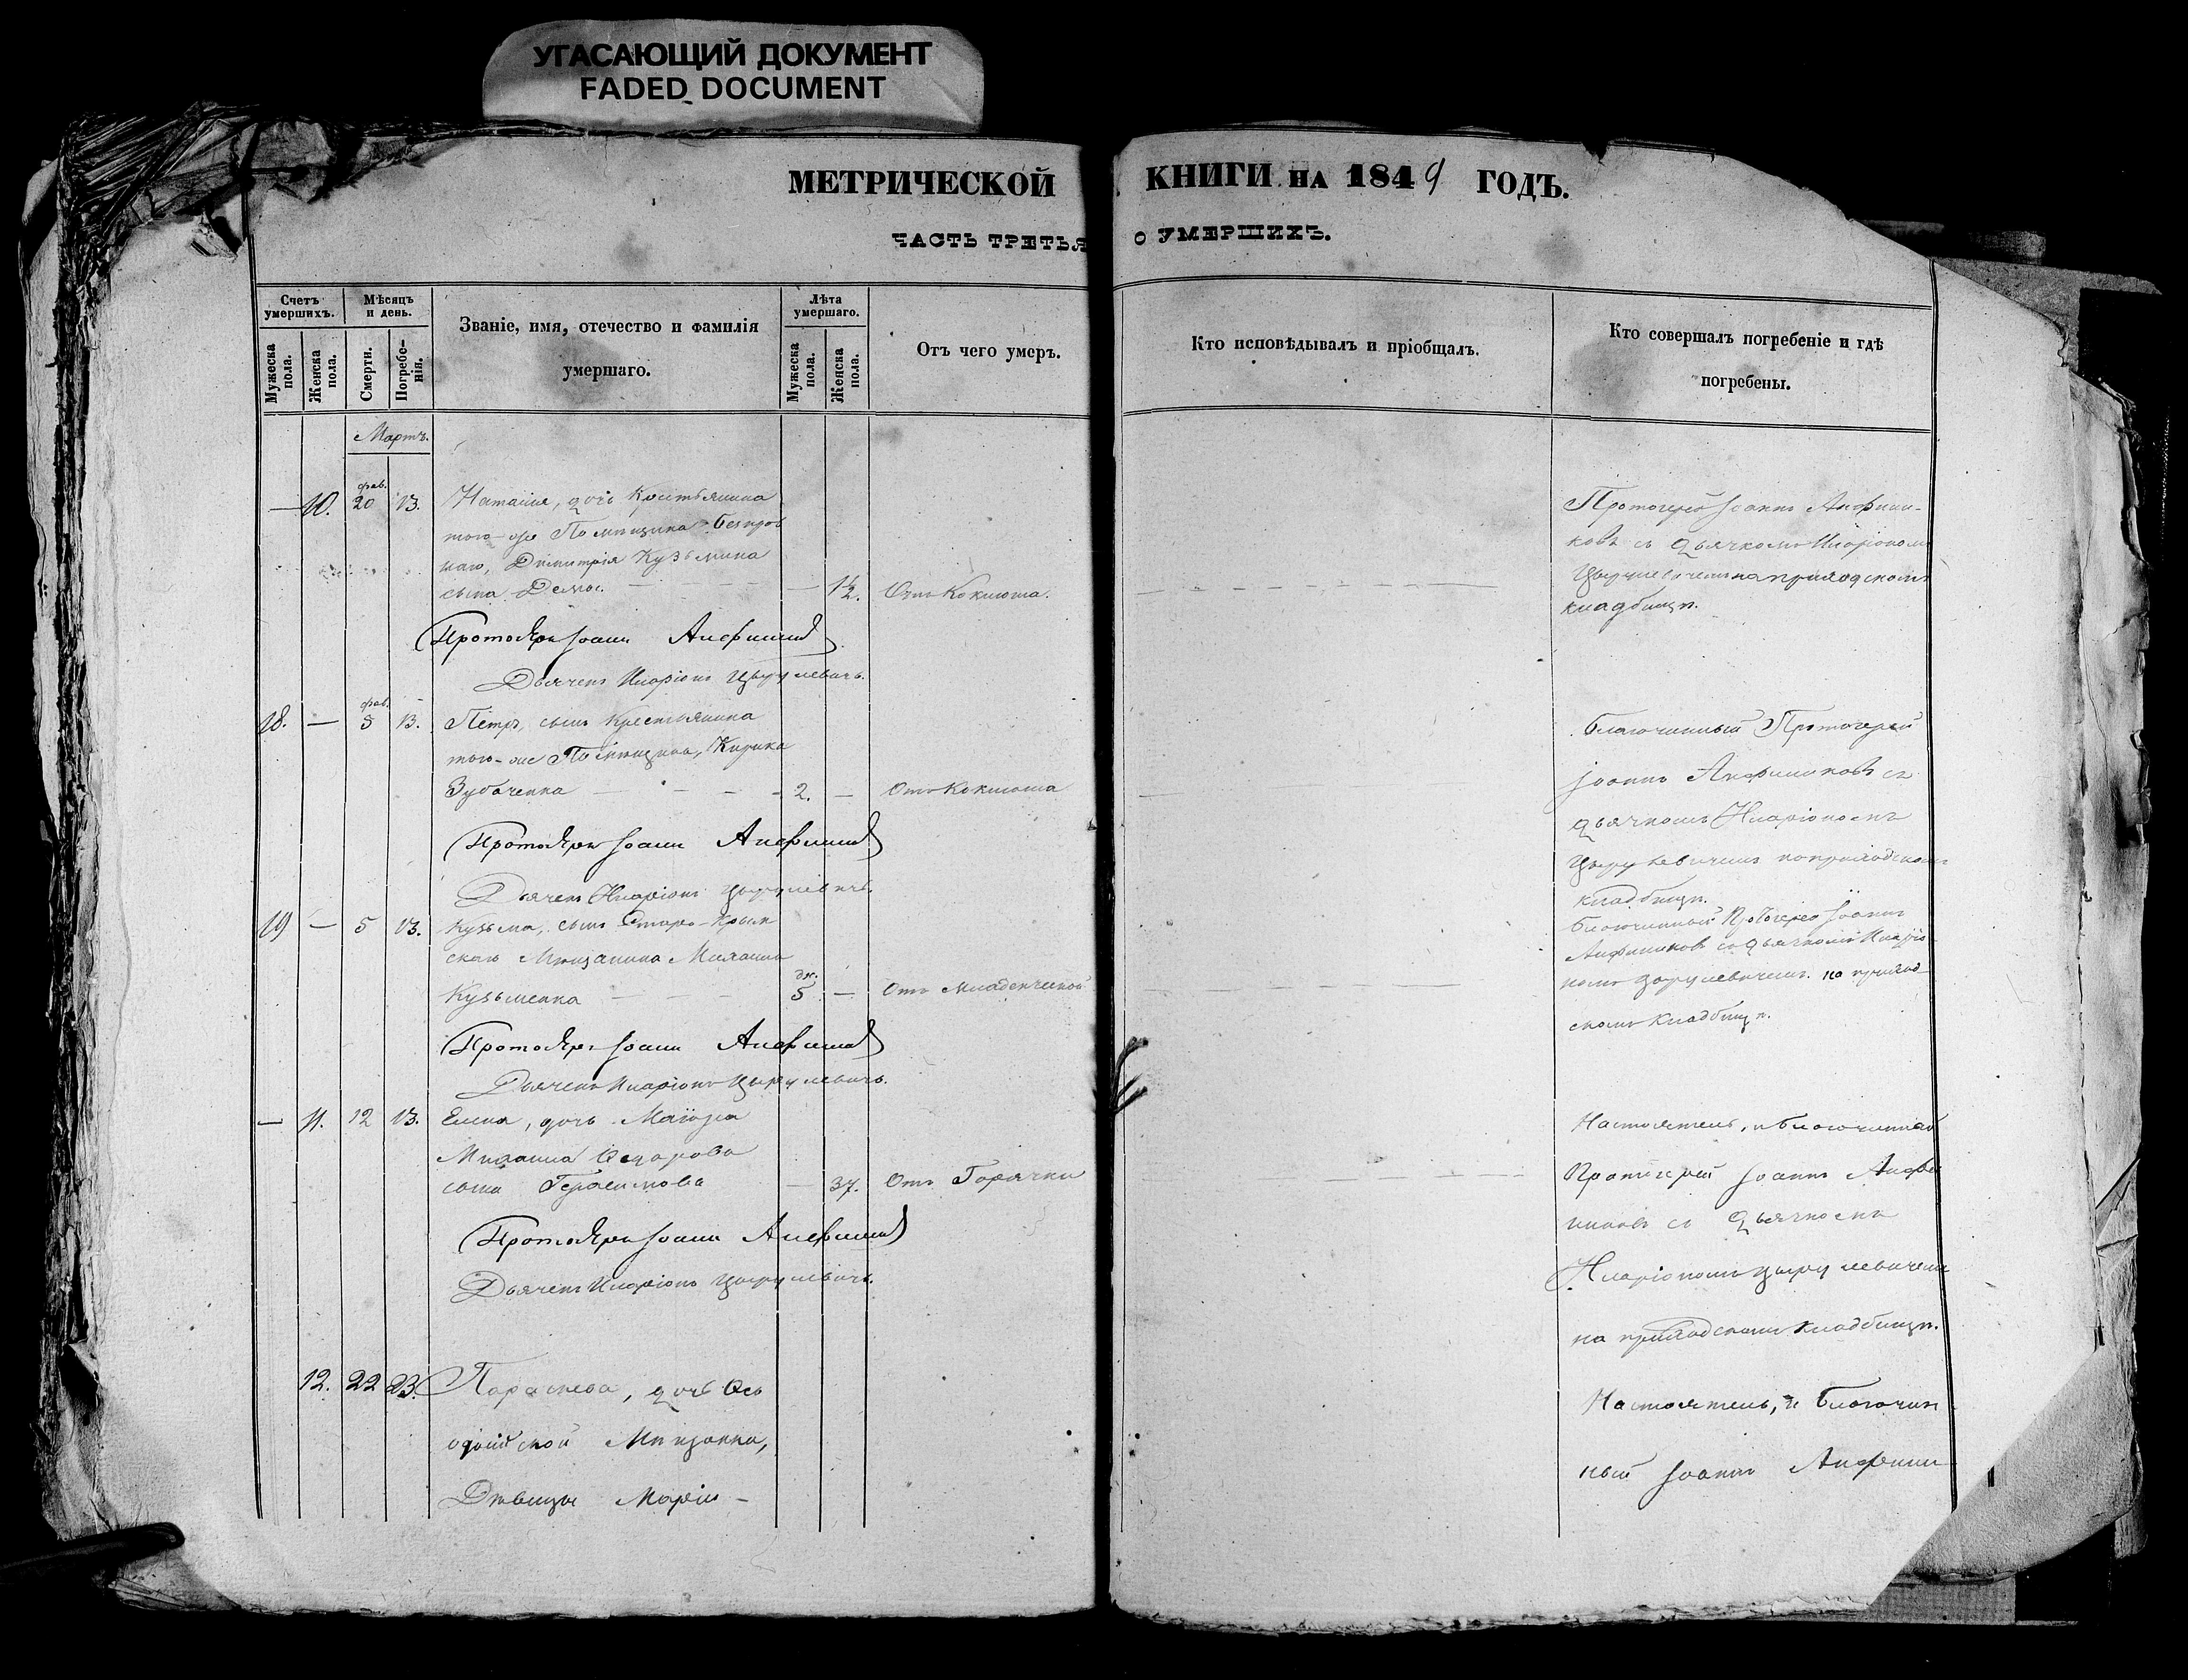 УГАСАЮЩИЙ ДОКУМЕНТ
FADED DOCUMENT
МЕТРИЧЕСКОЙ КНИГИ НА 1849 ГОДЪ.
ЧАСТЬ ТРЕТЬЯ О УМЕРШИХЪ.
Счетъ умершихъ.
Мужеска пола.
Женска пола.
Мѣсяцъ и день.
Смерти.
Погребе-
нія.
Званіе, имя, отечество и фамилія
умершаго.
Лѣта умершаго.
Мужеска пола.
Женска пола.
Отъ чего умеръ.
Кто исповѣдывалъ и пріобщалъ.
Кто совершалъ погребеніе и гдѣ
погребены.
Мартъ.
фев.
— 10. 20 13. Наталія, дочь Крестьянина
того-же Помѣщика
Димитрія Кузьмина
сына — 1½. Отъ Коклюша.
Протоіерей Іоаннъ Анфиммов
Дьячекъ Иларіонъ Цырулевичъ.
Протоіерей Іоаннъ Анфимм-
ковъ съ дьячкомъ Иларіономъ
Цырулевичемъ на приходскомъ
кладбищѣ.
фев.
18. — 5 13. Петръ, сынъ Крестьянина
того-же Помѣщика, Кирика
Зубаченка — 2. — Отъ Коклюша
Протоіерей Іоаннъ
Дьячекъ Иларіонъ Цырулевичъ.
Благочинный Протоіерей
Іоаннъ съ
дьячкомъ Иларіономъ
Цырулевичемъ на приходскомъ
кладбищѣ.
19 — 5 13. Кузьма, сынъ Старо-Крым
скаго Мѣщанина Михаила
дн.
Кузьменка — 5 — Отъ Младенческой
Протоіерей Іоаннъ
Дьячекъ Иларіонъ Цырулевичъ.
Благочинный Протоіерей Іоаннъ
съ дьячкомъ Иларіо
номъ Цырулевичемъ на приход
скомъ кладбищѣ.
— 11. 12 13. Елена, дочь Маіора
Михаила Федорова
сына Герасимова — 37. Отъ Горячки
Протоіерей Іоаннъ
Дьячекъ Иларіонъ Цырулевичъ.
Настоятель, и благочинный
Протоіерей Іоаннъ
съ дьячкомъ
Иларіономъ Цырулевичемъ
на приходскомъ кладбищѣ.
12. 22 23. Параскева, дочь Ѳео
досійской Мѣщанки,
Дѣвицы Маріи —
Настоятель, и благочин
ный Іоаннъ